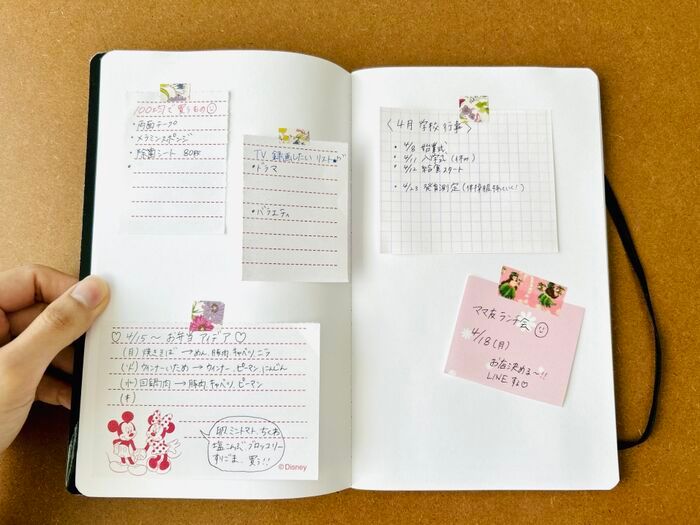 100均で買うもの
・両面テープ
・メラミンスポンジ
・除菌シート 80枚
・
TV 録画したいリスト
・ドラマ
・バラエティ
♡ 4/15〜 お弁当 アイデア ♡
(月) 焼きそば → めん、豚肉、キャベツ、ニラ
(火) ウインナーいため → ウインナー、ピーマン、にんじん
(水) 回鍋肉 → 豚肉、キャベツ、ピーマン
(木)
ミニトマト、ちくわ
塩こんぶ、ブロッコリー
すりごま、買う!!
©Disney
〈4月 学校 行事〉
・4/8 始業式
・4/11 入学式 (休み)
・4/12 給食スタート
・4/23 発育測定
ママ友ランチ会
4/18(月)
お店決める〜!!
LINEする♡